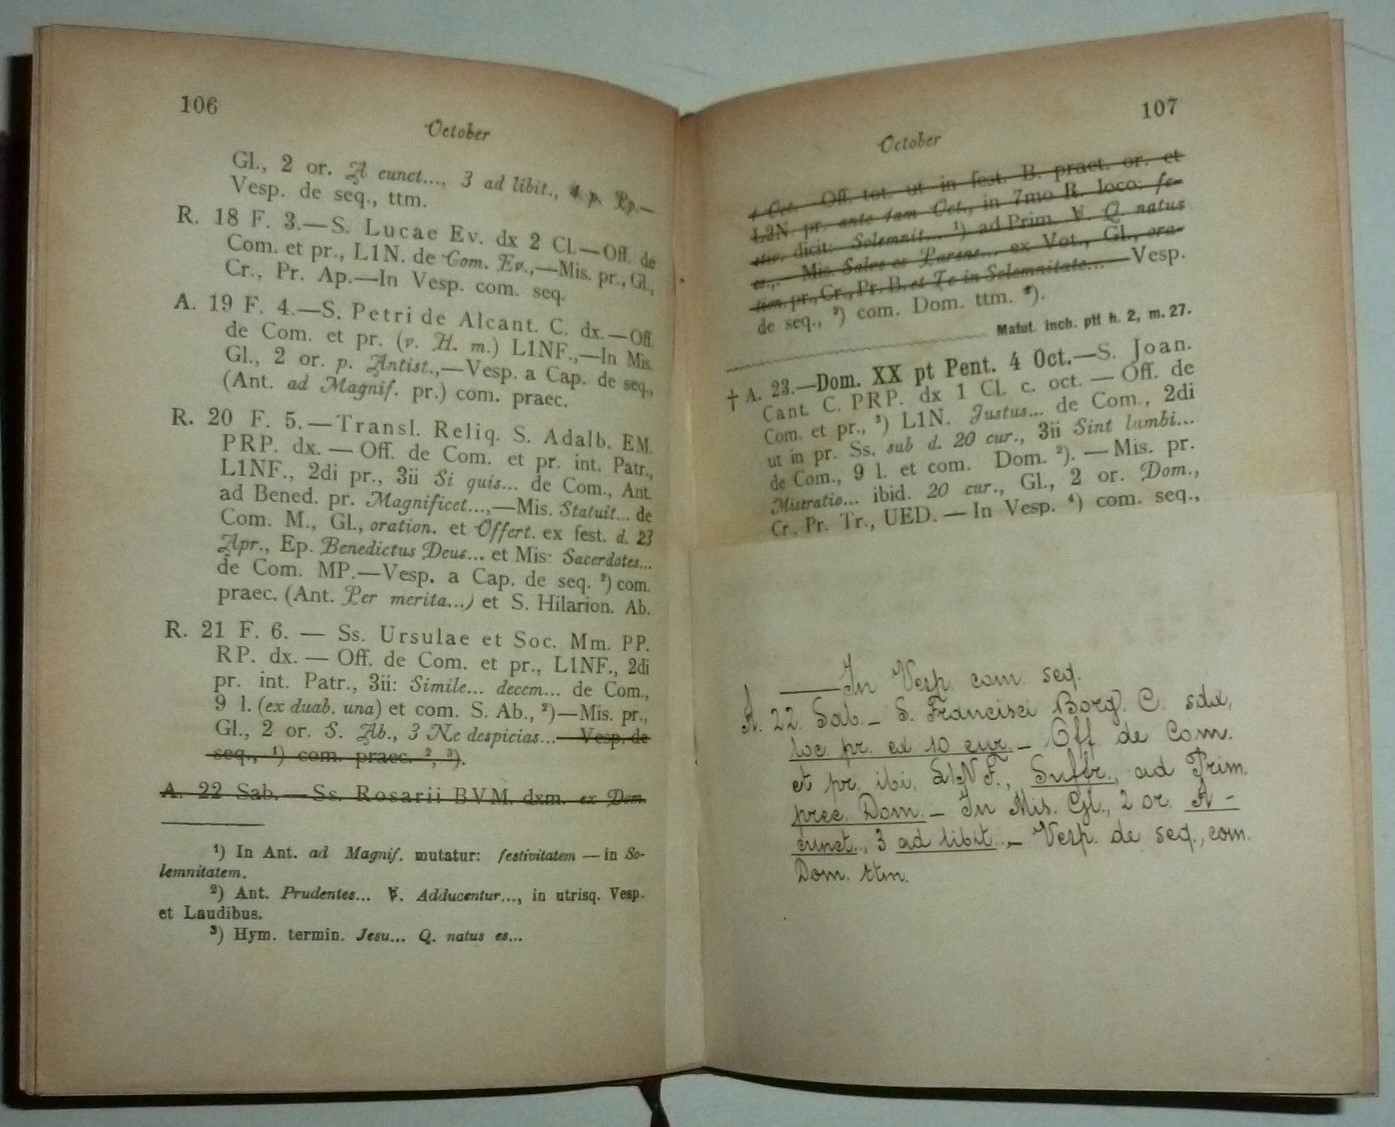 106
October
Gl., 2 or. A cunct..., 3 ad libit., 4 p. Ep.—
Vesp. de seq., ttm.
R. 18 F. 3.—S. Lucae Ev. dx 2 Cl.—Off. de
Com. et pr., L1N. de Com. Ev.,—Mis. pr., Gl.,
Cr., Pr. Ap.—In Vesp. com. seq.
A. 19 F. 4.—S. Petri de Alcant. C. dx.—Off.
de Com. et pr. (v. H. m.) L1NF.,—In Mis.
Gl., 2 or. p. Antist.,—Vesp. a Cap. de seq.,
(Ant. ad Magnif. pr.) com. praec.
R. 20 F. 5.—Transl. Reliq. S. Adalb. EM.
PRP. dx. — Off. de Com. et pr. int. Patr.,
L1NF., 2di pr., 3ii Si quis... de Com., Ant.
ad Bened. pr. Magnificet...,—Mis. Statuit... de
Com. M., Gl., oration. et Offert. ex fest. d. 23
Apr., Ep. Benedictus Deus... et Mis: Sacerdotes...
de Com. MP.—Vesp. a Cap. de seq. ²) com.
praec. (Ant. Per merita...) et S. Hilarion. Ab.
R. 21 F. 6. — Ss. Ursulae et Soc. Mm. PP.
RP. dx. — Off. de Com. et pr., L1NF., 2di
pr. int. Patr., 3ii: Simile... decem... de Com.,
9 l. (ex duab. una) et com. S. Ab., ²)—Mis. pr.,
Gl., 2 or. S. Ab., 3 Ne despicias...— Vesp. de
seq., ¹) com. praec. ², ³).
A. 22 Sab.—Ss. Rosarii BVM. dxm. ex Dom.
¹) In Ant. ad Magnif. mutatur: festivitatem — in So-
lemnitatem.
²) Ant. Prudentes... V. Adducentur..., in utrisq. Vesp.
et Laudibus.
³) Hym. termin. Jesu... Q. natus es...
107
October
1 Oct.—Off. tot. ut in fest. B. praet. or. et
L2N. pr. ante 1am Oct., in 7mo R. loco: fe-
stiv. dicit: Solemnit... ¹) ad Prim. V. Q. natus
es,.— Mis. Salve es Parens... ex Vot., Gl., ora-
tion. pr., Cr., Pr. B. et Te in Solemnitate... —Vesp.
de seq., ²) com. Dom. ttm. ³).
Matut. inch. ptt h. 2, m. 27.
† A. 23.—Dom. XX pt Pent. 4 Oct.—S. Joan.
Cant. C. PRP. dx 1 Cl. c. oct. — Off. de
Com. et pr., ³) L1N. Justus... de Com., 2di
ut in pr. Ss. sub d. 20 cur., 3ii Sint lumbi...
de Com., 9 l. et com. Dom. ²). — Mis. pr.
Misratio... ibid. 20 cur., Gl., 2 or. Dom.,
Cr., Pr. Tr., UED. — In Vesp. ⁴) com. seq.,
—In Vesp. com. seq.
A. 22. Sab. – S. Francisci Borg. C. sdx,
loc. pr. ed 10 cur. – Off. de Com.
et pr. ibi, L1NF., Suffr., ad Prim.
prec. Dom. – In Mis. Gl., 2 or. A -
cunct., 3 ad libit., – Vesp. de seq., com.
Dom. ttm.